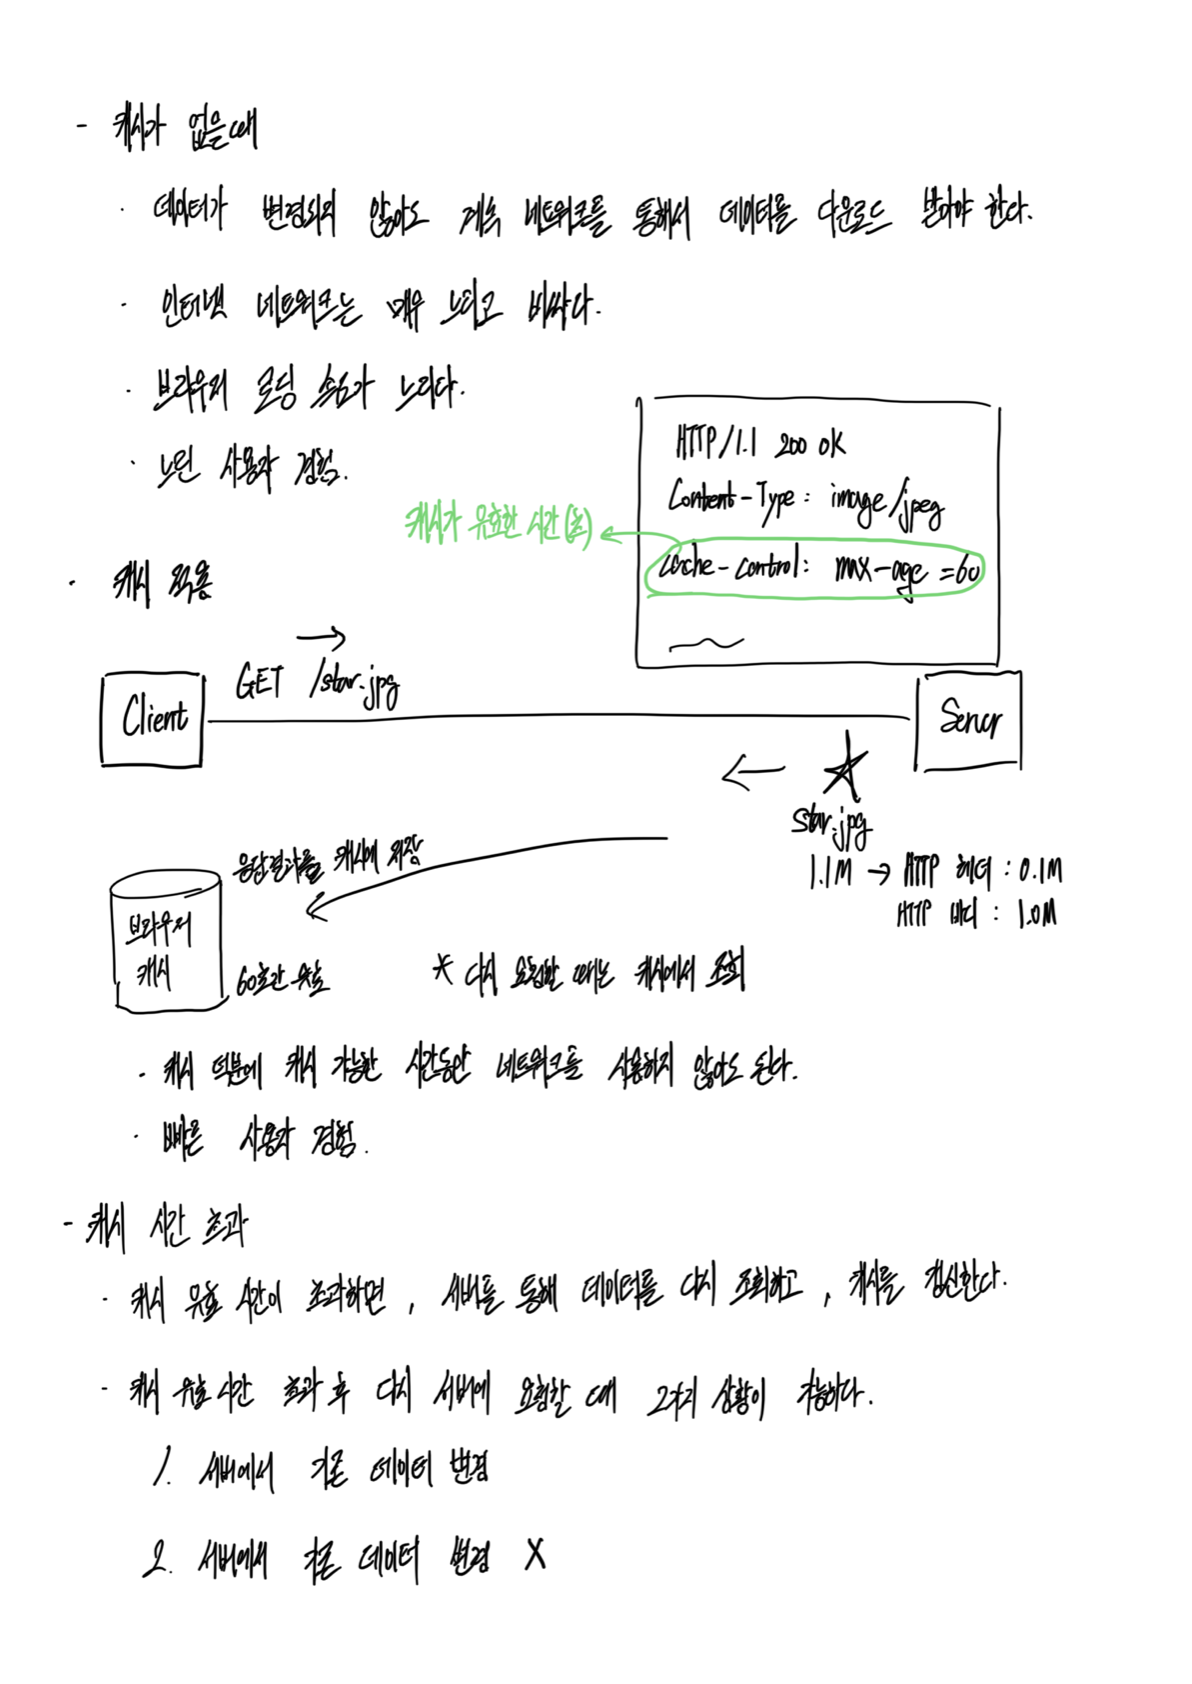 - 캐시가 없을때
· 데이터가 변경되지 않아도 계속 네트워크를 통해서 데이터를 다운로드 받아야 한다.
· 인터넷 네트워크는 매우 느리고 비싸다.
· 브라우저 로딩 속도가 느리다.
· 느린 사용자 경험.
HTTP/1.1 200 OK
Content-Type: image/jpeg
캐시가 유효한 시간(초)
cache-control: max-age=60
· 캐시 적용
GET /star.jpg
Client
Server
star.jpg
1.1M → HTTP 헤더 : 0.1M
HTTP 바디 : 1.0M
응답결과를 캐시에 저장
브라우저
캐시
60초간 유효
* 다시 요청할 때는 캐시에서 조회
· 캐시 덕분에 캐시 가능한 시간동안 네트워크를 사용하지 않아도 된다.
· 빠른 사용자 경험.
- 캐시 시간 초과
· 캐시 유효 시간이 초과하면, 서버를 통해 데이터를 다시 조회하고, 캐시를 갱신한다.
- 캐시 유효시간 초과 후 다시 서버에 요청할 때 2가지 상황이 가능하다.
1. 서버에서 기존 데이터 변경
2. 서버에서 기존 데이터 변경 X